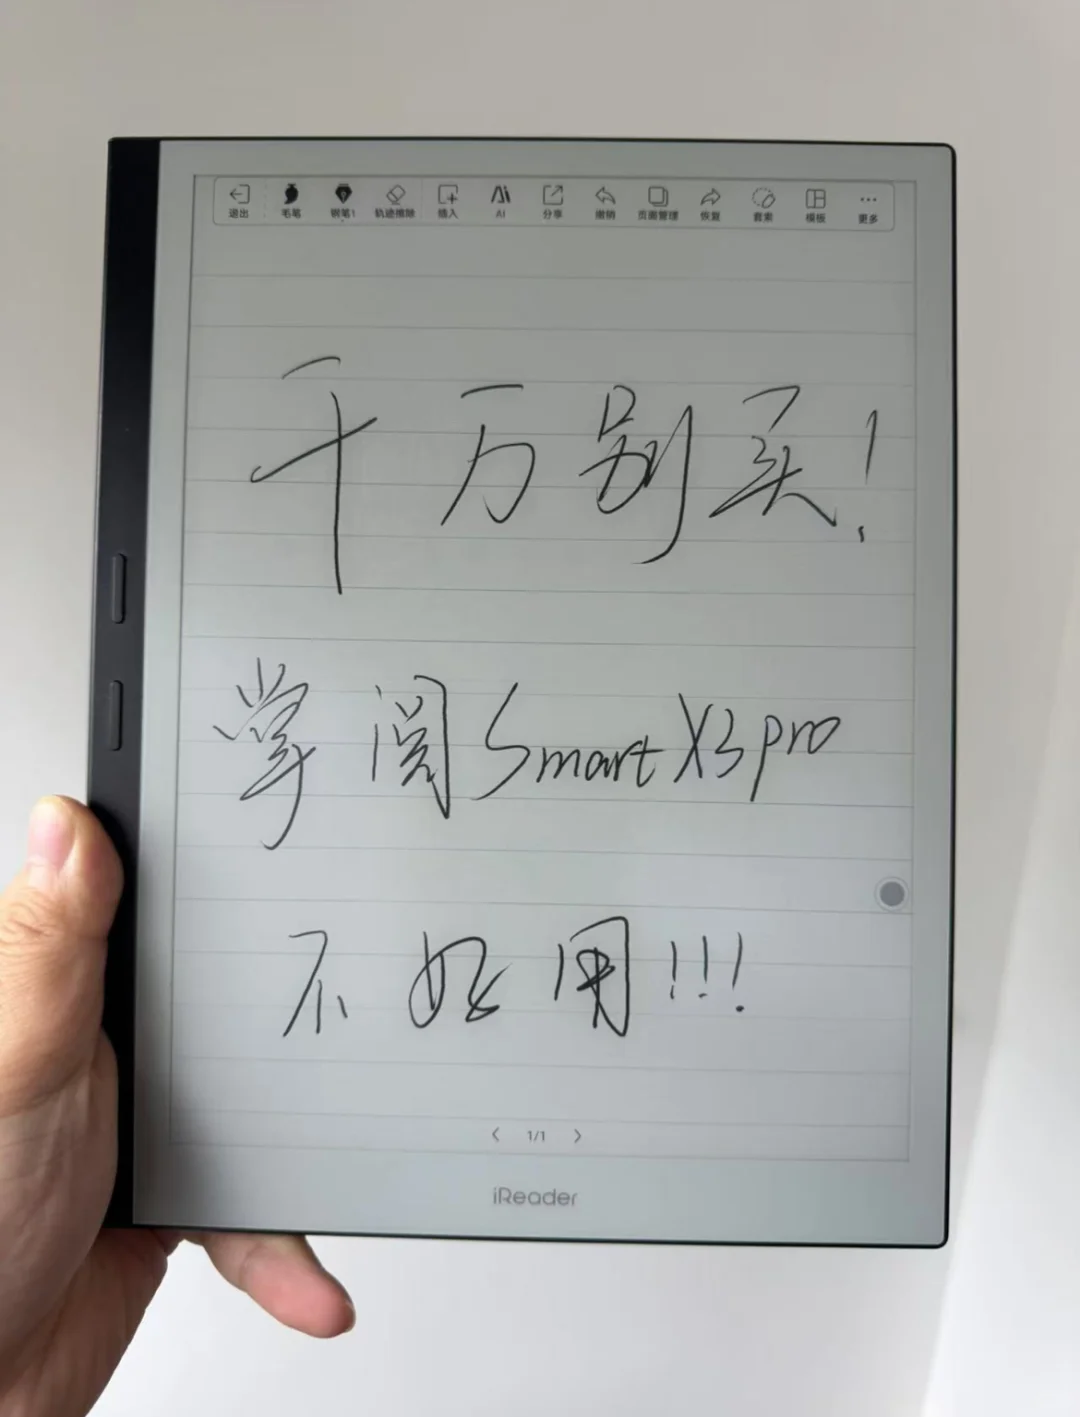 退出 毛笔 钢笔1 轨迹擦除 插入 AI 分享 撤销 页面管理 恢复 套索 模板 更多
千万别买！
掌阅SmartX3pro
不好用!!!
1/1
iReader